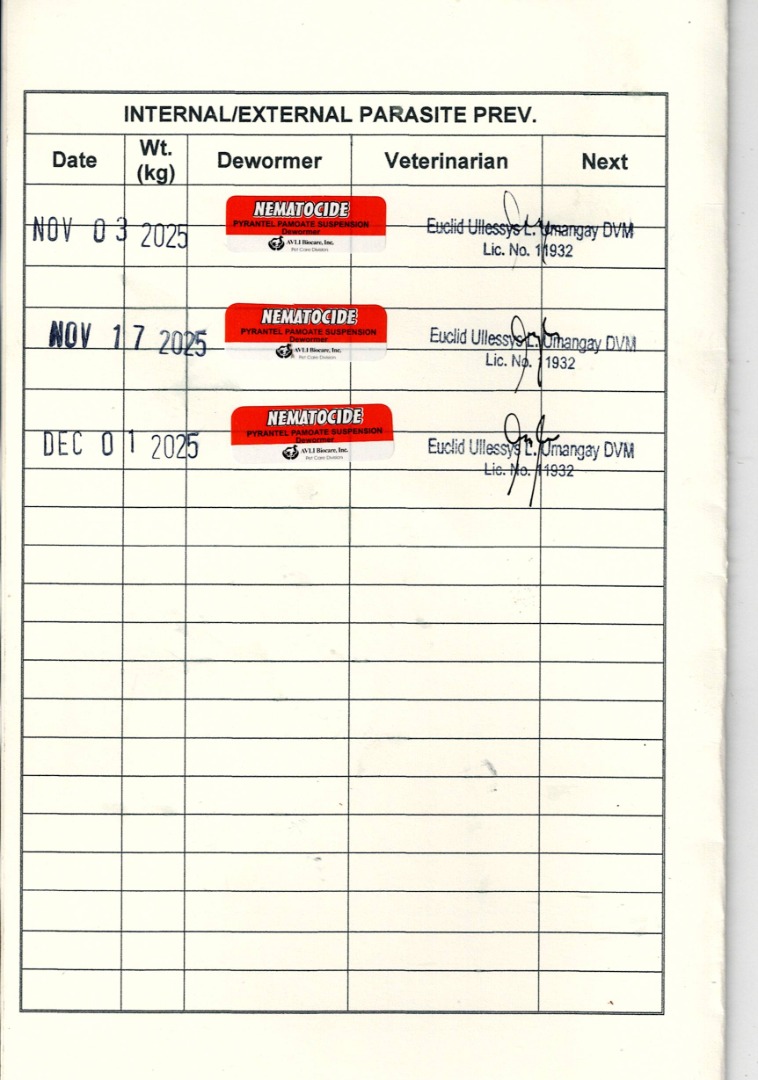 INTERNAL/EXTERNAL PARASITE PREV.
Date Wt. (kg) Dewormer Veterinarian Next
NOV 03 2025
NEMATOCIDE
PYRANTEL PAMOATE SUSPENSION
Dewormer
AVLI Biocare, Inc.
Pet Care Division
Euclid Ullessys L. Umangay DVM
Lic. No. 11932
NOV 17 2025
NEMATOCIDE
PYRANTEL PAMOATE SUSPENSION
Dewormer
AVLI Biocare, Inc.
Pet Care Division
Euclid Ullessys L. Umangay DVM
Lic. No. 11932
DEC 01 2025
NEMATOCIDE
PYRANTEL PAMOATE SUSPENSION
Dewormer
AVLI Biocare, Inc.
Pet Care Division
Euclid Ullessys L. Umangay DVM
Lic. No. 11932